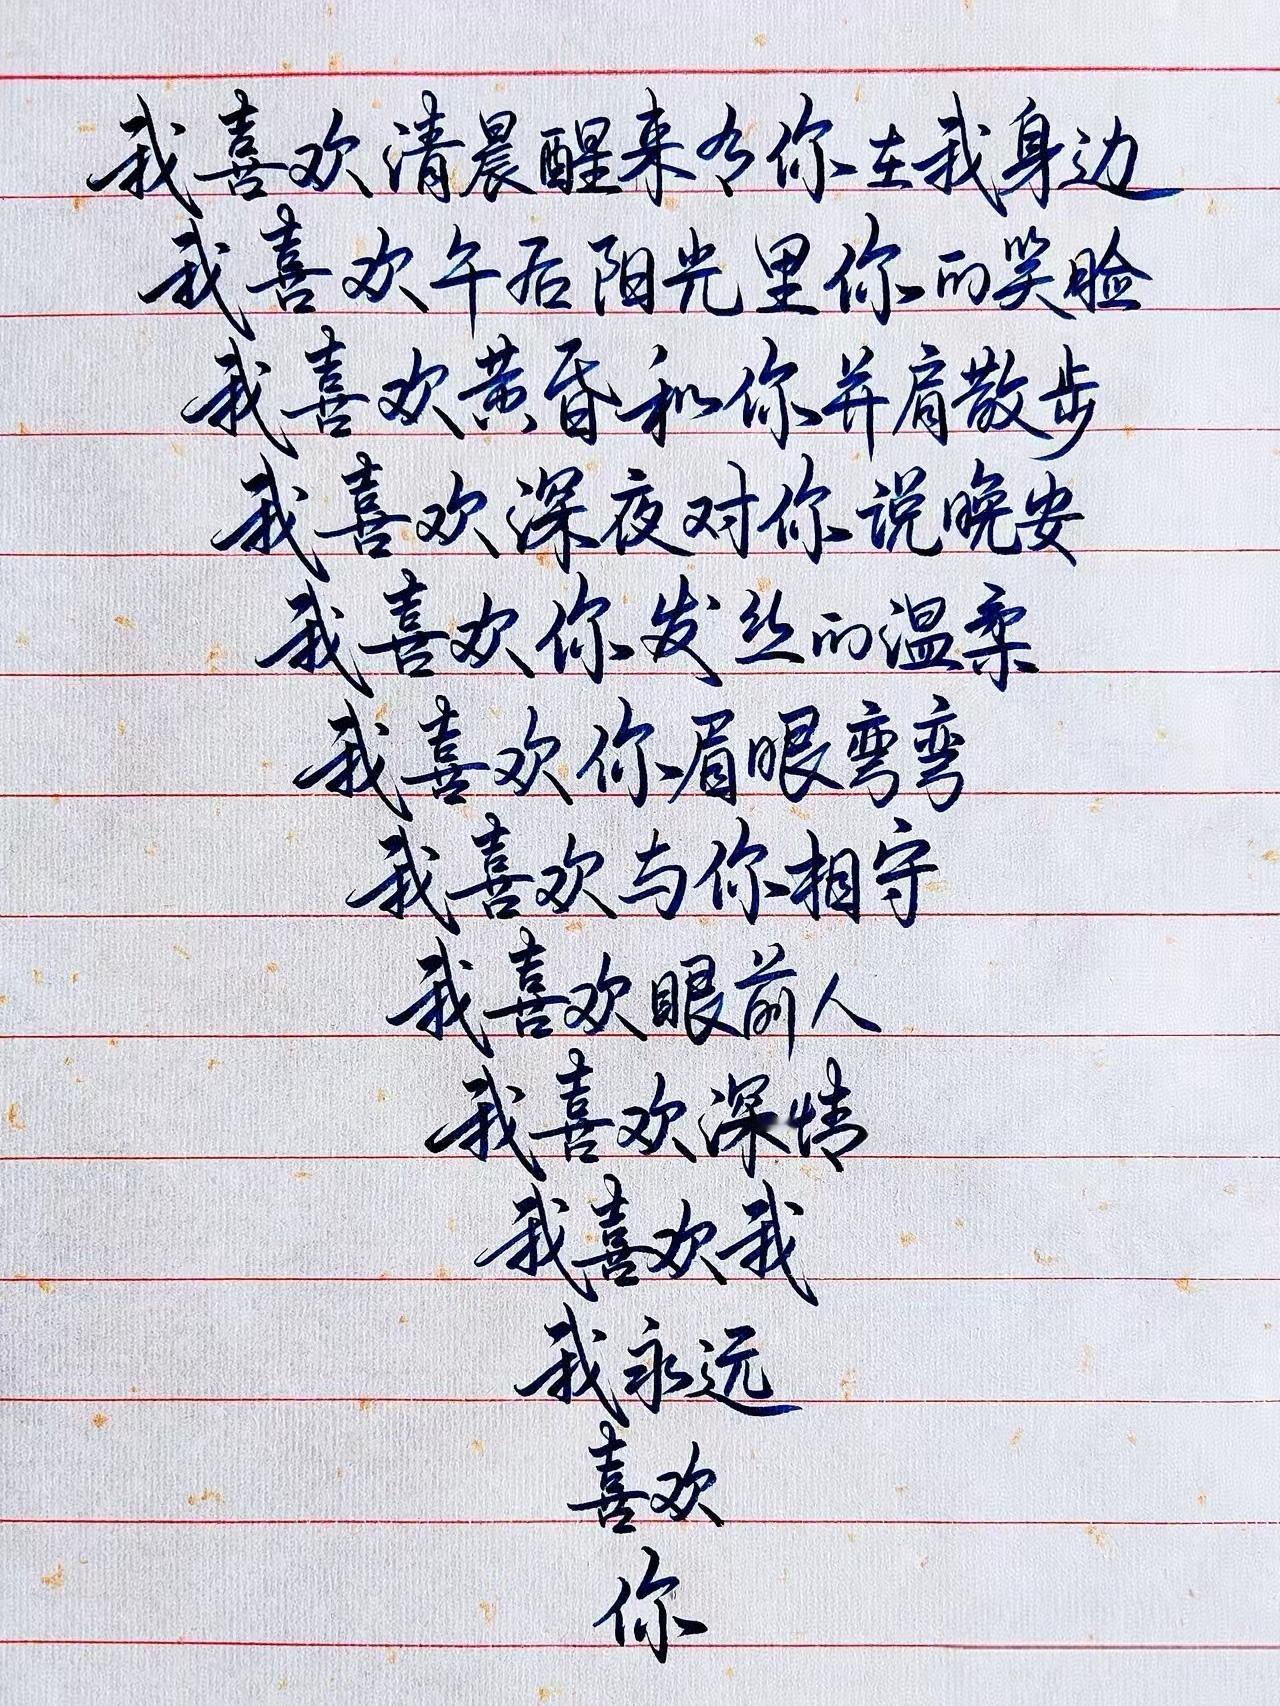 我喜欢清晨醒来有你在我身边
我喜欢午后阳光里你的笑脸
我喜欢黄昏和你并肩散步
我喜欢深夜对你说晚安
我喜欢你发丝的温柔
我喜欢你眉眼弯弯
我喜欢与你相守
我喜欢眼前人
我喜欢深情
我喜欢我
我永远
喜欢
你